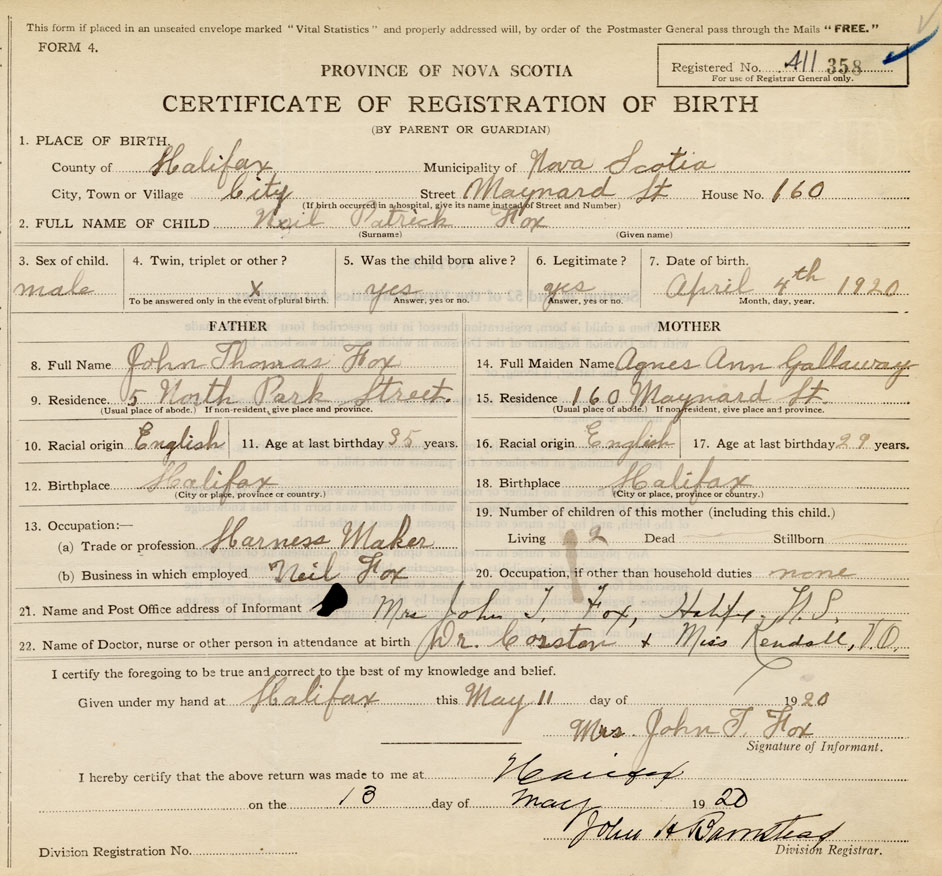 This form if placed in an unsealed envelope marked "Vital Statistics" and properly addressed will, by order of the Postmaster General pass through the Mails "FREE."
FORM 4.
Registered No. 411 358
For use of Registrar General only.
PROVINCE OF NOVA SCOTIA
CERTIFICATE OF REGISTRATION OF BIRTH
(BY PARENT OR GUARDIAN)
1. PLACE OF BIRTH,
County of Halifax Municipality of Nova Scotia
City, Town or Village City Street Maynard St House No. 160
(If birth occurred in a hospital, give its name instead of Street and Number)
2. FULL NAME OF CHILD Neil Patrick Fox
(Surname) (Given name)
3. Sex of child. 4. Twin, triplet or other? 5. Was the child born alive? 6. Legitimate? 7. Date of birth.
male x yes yes April 4th 1920
To be answered only in the event of plural birth. Answer, yes or no. Answer, yes or no. Month, day, year.
FATHER MOTHER
8. Full Name John Thomas Fox 14. Full Maiden Name Agnes Ann Gallaway
9. Residence. 5 North Park Street. 15. Residence 160 Maynard St.
(Usual place of abode.) If non-resident, give place and province. (Usual place of abode.) If non-resident, give place and province.
10. Racial origin English 11. Age at last birthday 35 years. 16. Racial origin English 17. Age at last birthday 29 years.
12. Birthplace Halifax 18. Birthplace Halifax
(City or place, province or country.) (City or place, province or country.)
13. Occupation:— 19. Number of children of this mother (including this child.)
(a) Trade or profession Harness Maker Living 2 Dead Stillborn
(b) Business in which employed Neil Fox 20. Occupation, if other than household duties none
21. Name and Post Office address of Informant Mrs John T. Fox, Halifx, N.S.
22. Name of Doctor, nurse or other person in attendance at birth Dr. Corston + Miss Kendall, V.O.
I certify the foregoing to be true and correct to the best of my knowledge and belief.
Given under my hand at Halifax this May 11 day of 1920
Mrs. John T. Fox
Signature of Informant.
I hereby certify that the above return was made to me at Halifax
on the 13 day of May 1920
John H Barnstead
Division Registrar.
Division Registration No.